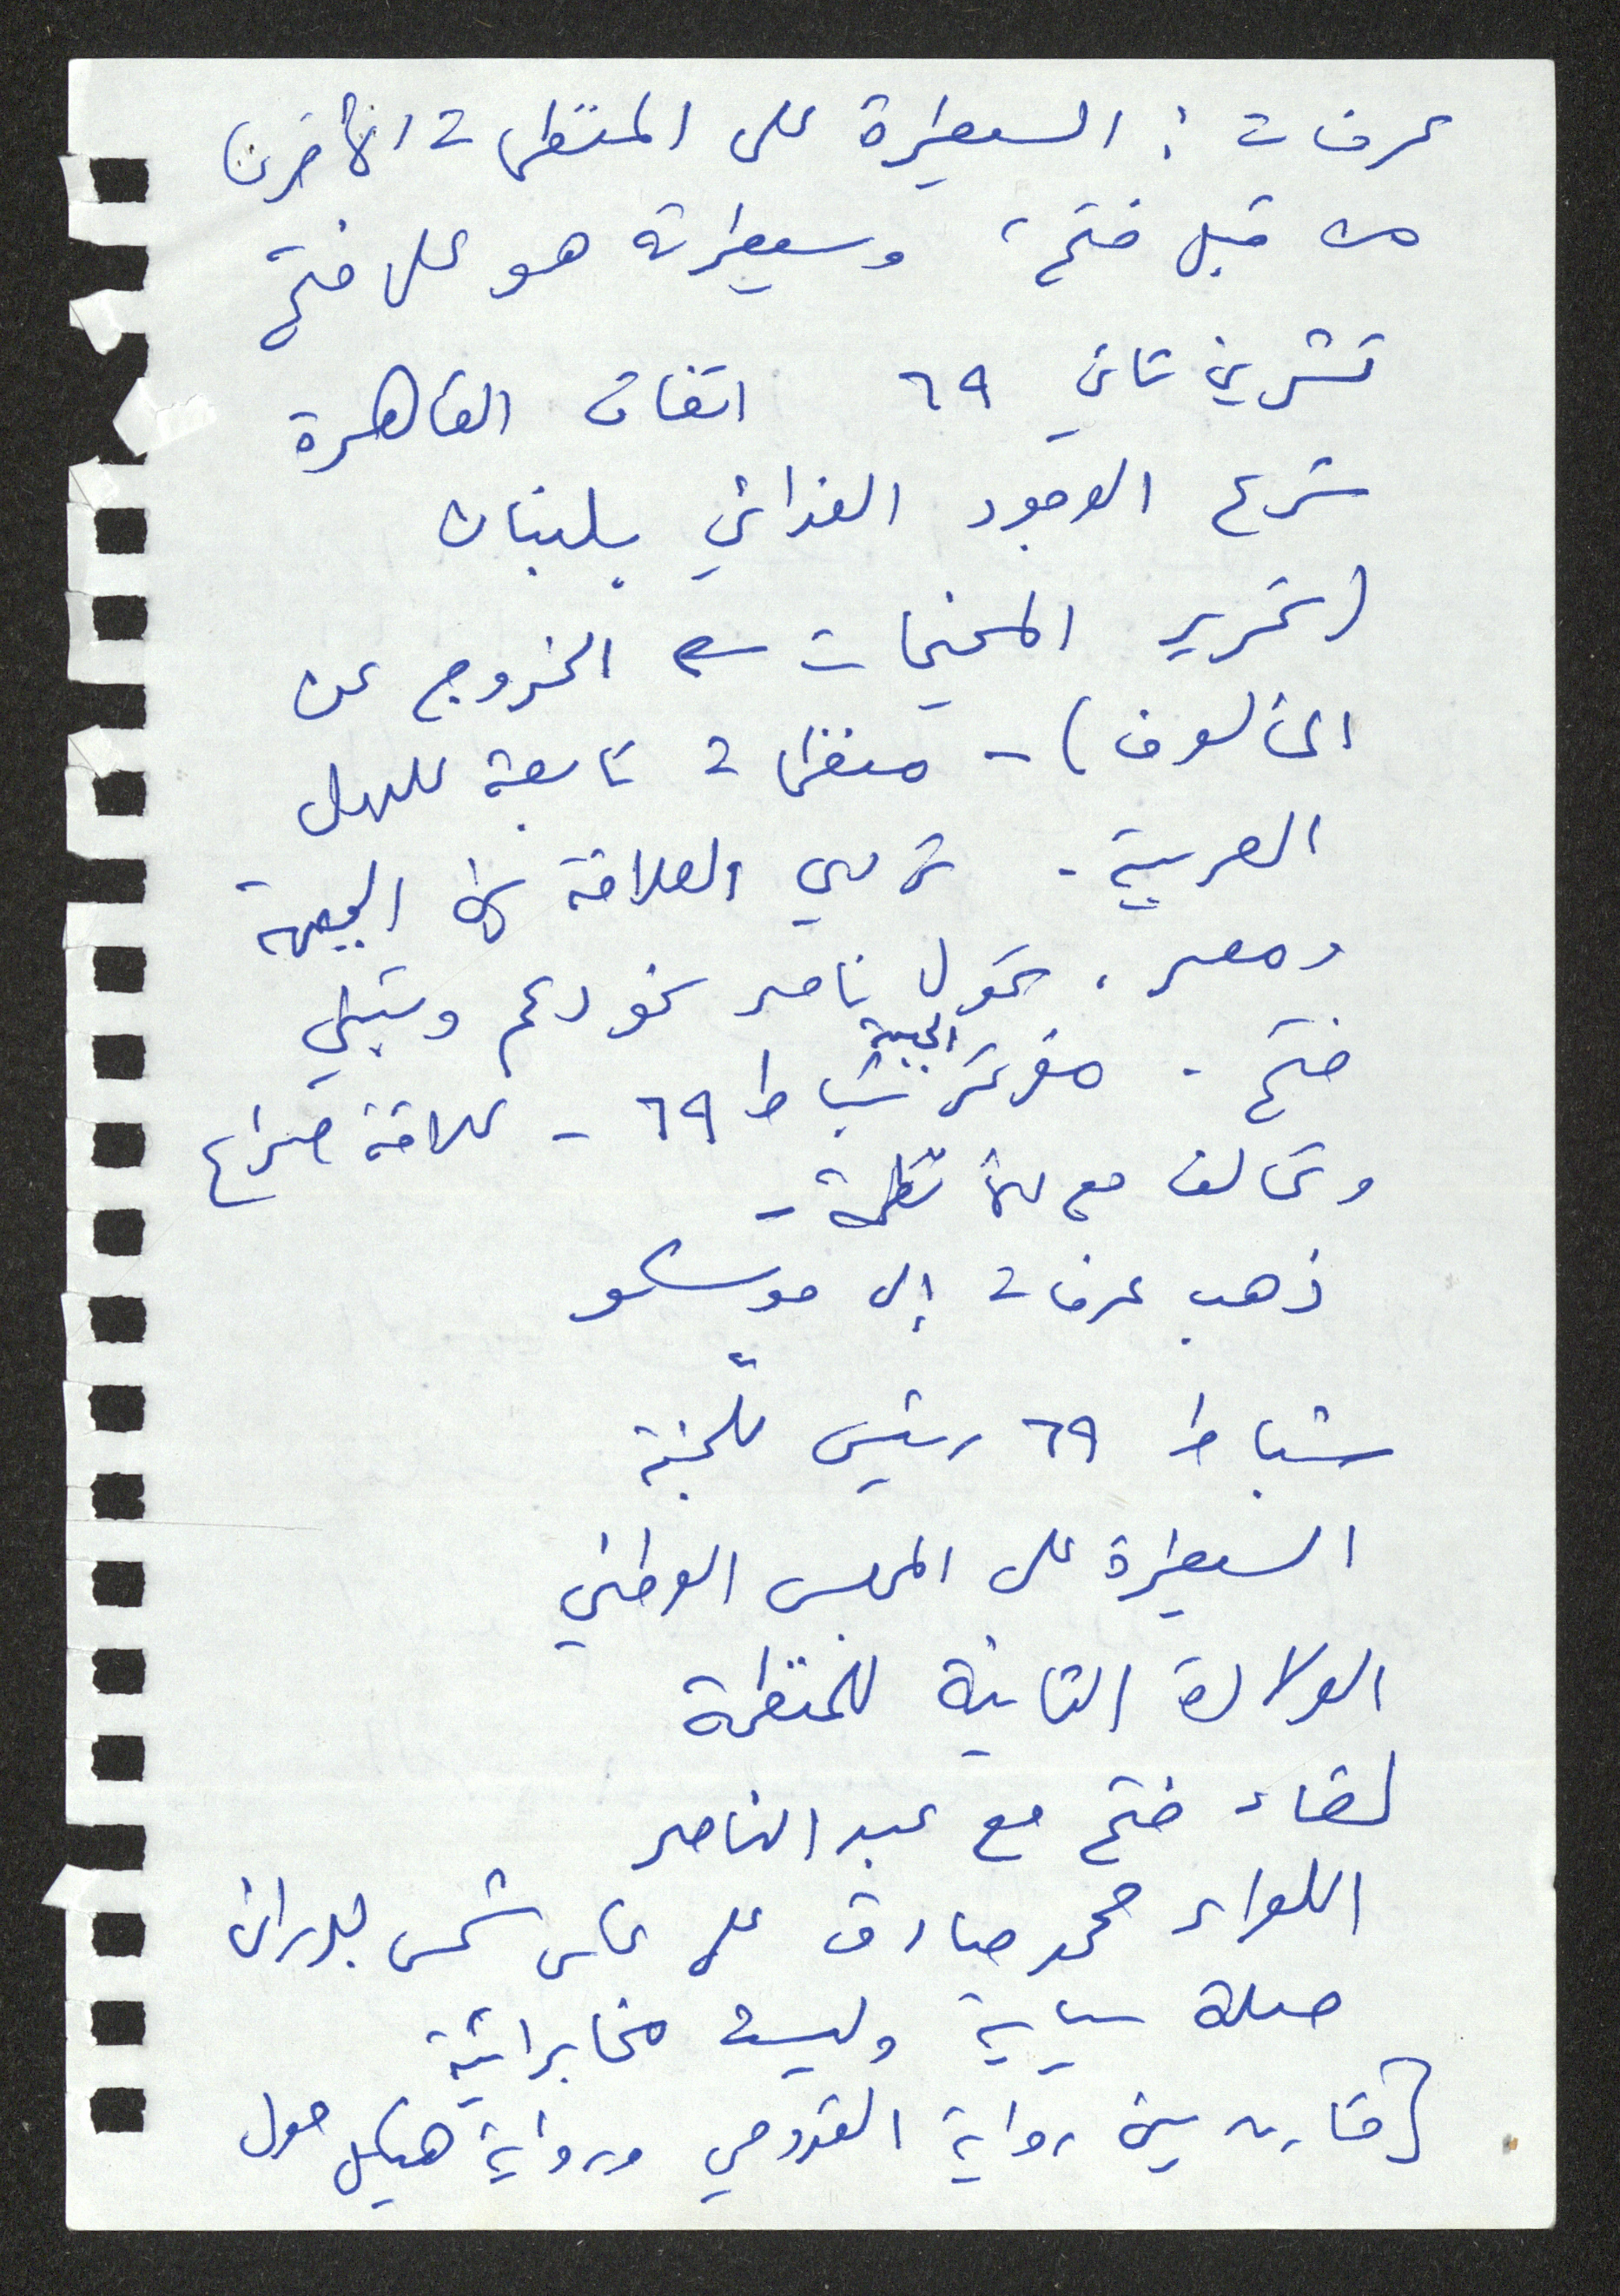 عرفات : السيطرة على المنظمات الأخرى
من قبل فتح، وسيطرته هو على فتح
تشرين ثاني ٦٩ اتفاق القاهرة
شرع الوجود الفدائي بلبنان
(تحرير المخيمات الخروج عن
المألوف) - منظمات تابعة للدول
العربية . تردي العلاقة بين الجبهة
ومصر . تحول ناصر نحو دعم وتبني
فتح . مؤتمر الجبهة شباط ٦٩ - علاقة صراع
وتحالف مع الأنظمة -
ذهب عرفات إلى موسكو
شباط ٦٩ رئيس للجنة
السيطرة على المجلس الوطني
الولادة الثانية للمنظمة
لقاء فتح مع عبد الناصر
اللواء محمد صادق على عباس شمس بدران
صلة سياسية وليست مخابراتية
[قارن بين رواية القدومي ورواية هيكل حول